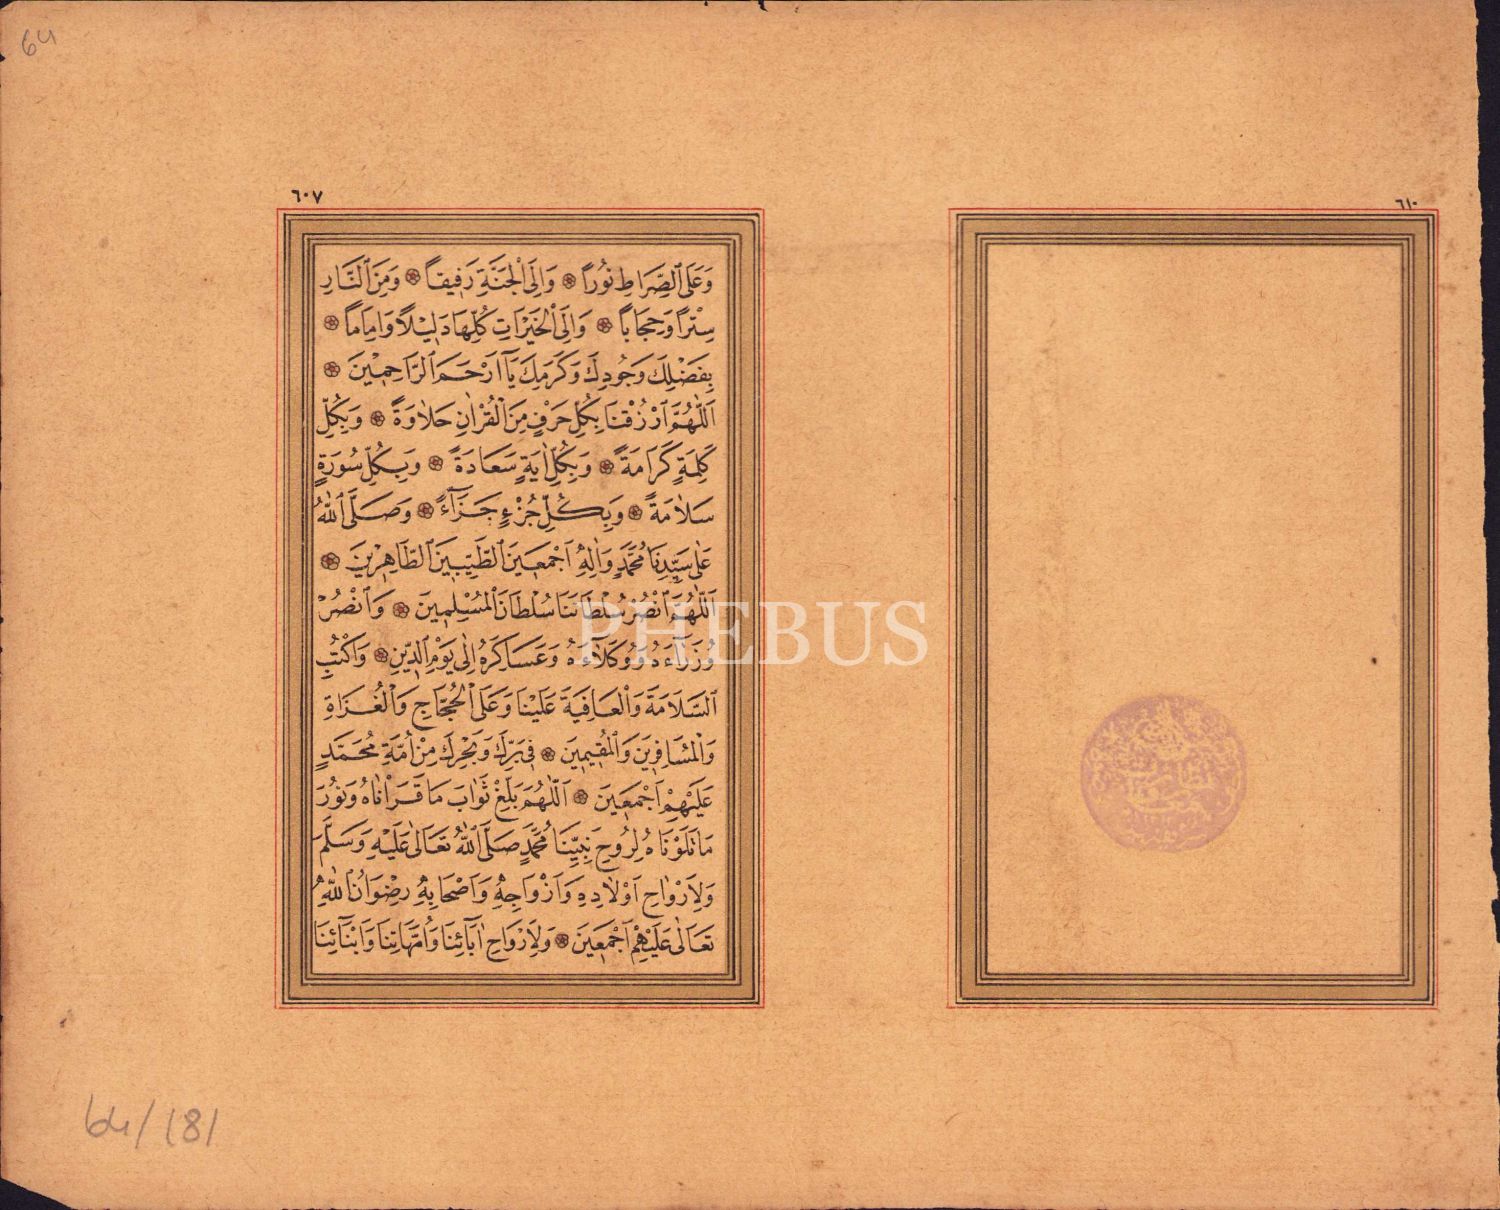 64
٦٠٧
وَعَلَى ٱلصِّرَاطِ نُورًا ۞ وَاِلَى ٱلْجَنَّةِ رَفِيقًا ۞ وَمِنَ ٱلنَّارِ
سِتْرًا وَحِجَابًا ۞ وَاِلَى ٱلْخَيْرَاتِ كُلِّهَا دَلِيْلًا وَاِمَامًا ۞
بِفَضْلِكَ وَجُودِكَ وَكَرَمِكَ يَآ اَرْحَمَ ٱلرَّاحِمِيْنَ ۞
اَللّٰهُمَّ ٱرْزُقْنَا بِكُلِّ حَرْفٍ مِنَ ٱلْقُرْاٰنِ حَلَاوَةً ۞ وَبِكُلِّ
كَلِمَةٍ كَرَامَةً ۞ وَبِكُلِّ اٰيَةٍ سَعَادَةً ۞ وَبِكُلِّ سُورَةٍ
سَلَامَةً ۞ وَبِكُلِّ جُزْءٍ جَزَآءً ۞ وَصَلَّى ٱللّٰهُ
عَلٰى سَيِّدِنَا مُحَمَّدٍ وَاٰلِهِ اَجْمَعِينَ ٱلطَّيِّبِينَ ٱلطَّاهِرِينَ ۞
اَللّٰهُمَّ ٱنْصُرْ سُلْطَانَنَا سُلْطَانَ ٱلْمُسْلِمِينَ ۞ وَٱنْصُرْ
وُزَرَآءَهُ وَوُكَلَاءَهُ وَعَسَاكِرَهُ اِلٰى يَوْمِ ٱلدِّينِ ۞ وَٱكْتُبِ
ٱلسَّلَامَةَ وَٱلْعَافِيَةَ عَلَيْنَا وَعَلَى ٱلْحُجَّاجِ وَٱلْغُزَاةِ
وَٱلْمُسَافِرِينَ وَٱلْمُقِيمِينَ ۞ فِى بَرِّكَ وَبَحْرِكَ مِنْ اُمَّةِ مُحَمَّدٍ
عَلَيْهِمْ اَجْمَعِينَ ۞ اَللّٰهُمَّ بَلِّغْ ثَوَابَ مَا قَرَأْنَاهُ وَنُورَ
مَا تَلَوْنَاهُ لِرُوحِ نَبِيِّنَا مُحَمَّدٍ صَلَّى ٱللّٰهُ تَعَالٰى عَلَيْهِ وَسَلَّمَ
وَلِاَرْوَاحِ اَوْلَادِهِ وَاَزْوَاجِهِ وَاَصْحَابِهِ رِضْوَانُ ٱللّٰهِ
تَعَالٰى عَلَيْهِمْ اَجْمَعِينَ ۞ وَلِاَرْوَاحِ اٰبَآئِنَا وَاُمَّهَاتِنَا وَاَبْنَآئِنَا
٦١٠
PHEBUS
64/181